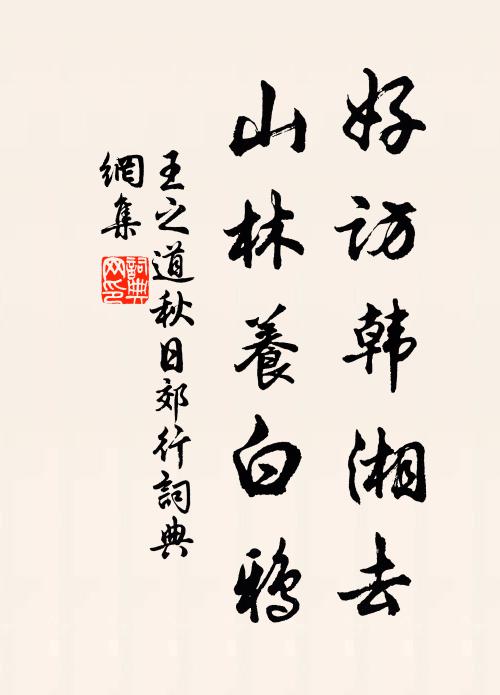 好访韩湘去
山林養白鴉
王之道秋日郊行詞典
網集
詞典網印